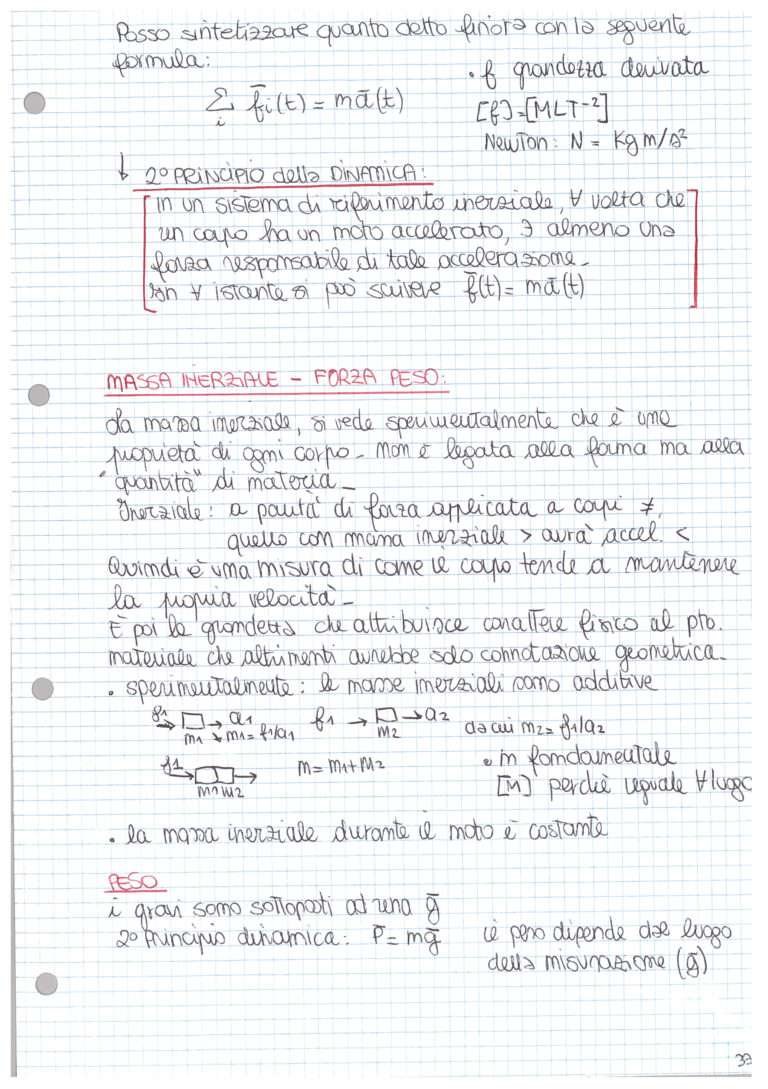 Posso sintetizzare quanto detto finora con la seguente
formula:
• f grandezza derivata
Σ f̄i(t) = mā(t)
i
[f]=[MLT⁻²]
Newton: N = Kg m/s²
↓ 2° PRINCIPIO della DINAMICA:
in un sistema di riferimento inerziale, ∀ volta che
un corpo ha un moto accelerato, ∃ almeno una
forza responsabile di tale accelerazione.
In ∀ istante si può scrivere f̄(t) = mā(t)
MASSA INERZIALE - FORZA PESO:
La massa inerziale, si vede sperimentalmente che è una
proprietà di ogni corpo. Non è legata alla forma ma alla
"quantità" di materia.
Inerziale: a parità di forza applicata a corpi ≠,
quello con massa inerziale > avrà accel. <
Quindi è una misura di come il corpo tende a mantenere
la propria velocità.
È poi la grandezza che attribuisce carattere fisico al pto.
materiale che altrimenti avrebbe solo connotazione geometrica.
• sperimentalmente: le masse inerziali sono additive
f1 → a1 f1 → → a2 da cui m2 = f1/a2
m1 ↘ m1 = f1/a1 m2
f1 → → m = m1 + m2
m1 m2
• m fondamentale
[M] perché uguale ∀ luogo
• la massa inerziale durante il moto è costante
PESO
i gravi sono sottoposti ad una ḡ
2° Principio dinamica: P̄ = mḡ
il peso dipende dal luogo
della misurazione (ḡ)